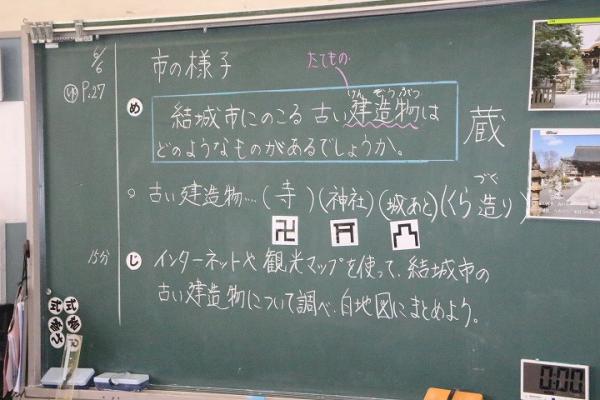 6/6
ゆ P.27
市の様子
たてもの
けんぞうぶつ
め 結城市にのこる 古い建造物は
どのようなものがあるでしょうか。
蔵
。古い建造物…(寺)(神社)(城あと)(くら造り)
づく
卍
15分
じ インターネットや観光マップを使って、結城市の
古い建造物について調べ、白地図にまとめよう。
式
式
0:00